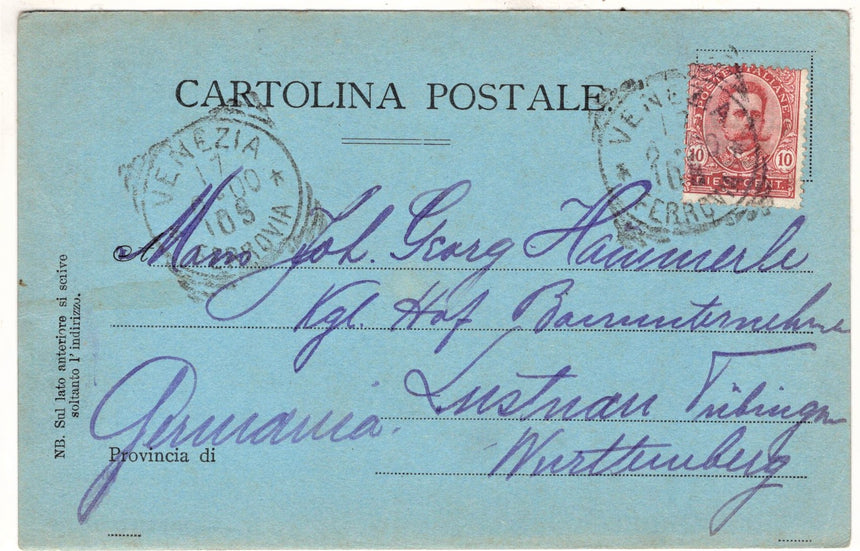 CARTOLINA POSTALE.
VENEZIA
17
00
10 S
FERROVIA
VENEZIA
17
10
FERROV
POSTE ITALIANE
10 10
CENT.
Joh. Georg Hämmerle
Kgl. Hof Bauunternehmer
Lustnau Tübingen
Württemberg
Germania.
Provincia di
NB. Sul lato anteriore si scrive
soltanto l'indirizzo.